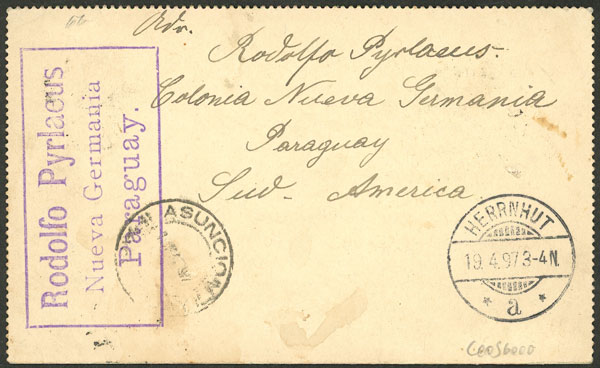 Adr.
Rodolfo Pyrlaeus.
Colonia Nueva Germania
Paraguay
Sud-America
Rodolfo Pyrlaeus
Nueva Germania
Paraguay.
ASUNCION
HERRNHUT
19.4.97.3-4N.
* a *